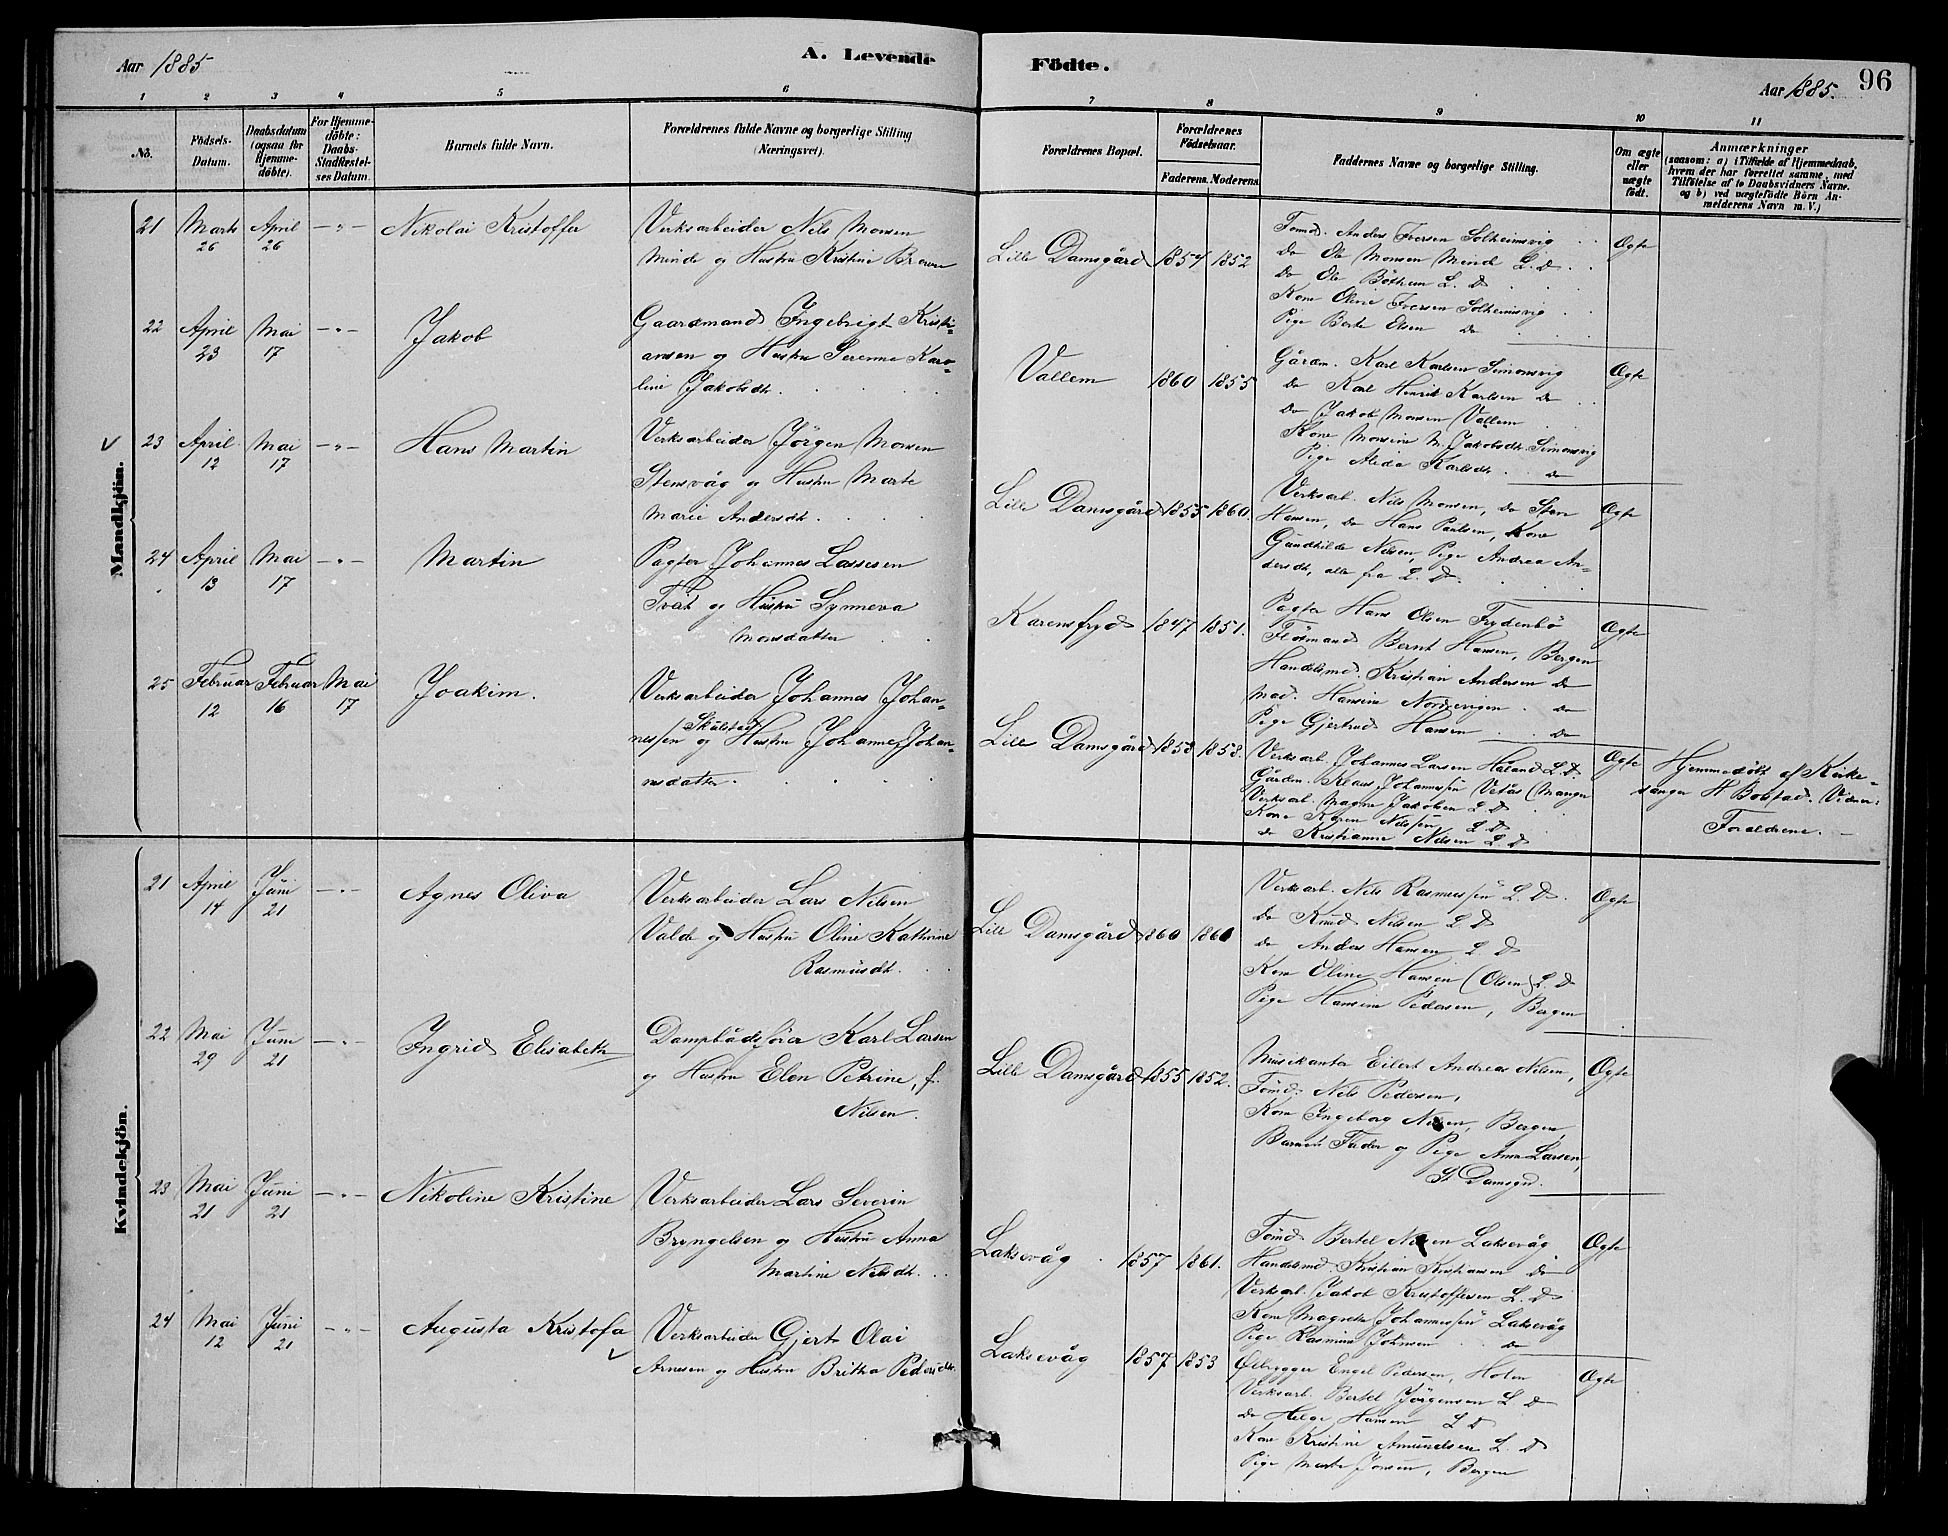 Aar 1885
A. Levende
Födte.
Aar 1885.
96
1 2 3 4 5 6 7 8 9 10 11
No.
Födsels-
Datum.
Daabsdatum
(ogsaa for
Hjemme-
döbte).
For Hjemme-
döbte:
Daabs-
Stadfæstel-
ses Datum.
Barnets fulde Navn.
Forældrenes fulde Navne og borgerlige Stilling
(Næringsvei).
Forældrenes Bopæl.
Forældrenes
Födselsaar.
Faderens. Moderens.
Faddernes Navne og borgerlige Stilling.
Om ægte
eller
uægte
födt.
Anmærkninger
(saasom: a) i Tilfælde af Hjemmedaab,
hvem der har forrettet samme, med
Tilföielse af to Daabsvidners Navne.
og b) ved uægtefödte Börn An-
melderens Navn m. V.)
Mandkjön.
21 Marts 26 April 26 -"- Nikolai Kristoffer
Verksarbeider Nils Monsen
Minde og Hustru Kristine
Lille Damsgård 1854 1852
Tømd. Anders Iversen Solheimsvig
Do Ole Monsen Minde L. D.
Do Ole L. D
Kone Oline Iversen Solheimsvig
Pige Berte Olsen Do
Ægte
22 April 23 Mai 17 -"- Jakob
Gaardmand Ingebrigt Kristi-
ansen og Hustru Serenne Karo-
line Jakobsdt.
Vallem 1860 1855
Gårdm. Karl Karlsen Simonsvig
do Karl Henrik Karlsen Do
Do Jakob Monsen Vallem
Kone Monsine M. Jakobsdt. Simonsvig
Pige Alida Karlsdt. Do
Ægte
23 April 12 Mai 17 -"- Hans Martin
Verksarbeider Jörgen Monsen
Stensvåg og Hustru Marte
Marie Andersdt.
Lille Damsgård 1855 1860.
Verksarb. Nils Monsen, do Sten
Hansen, do Hans Paulsen, Kone
Gundhilde Nilsen, Pige Andrea An-
dersdt, alle fra L. D.
Ægte
24 April 13 Mai 17 -"- Martin
Pagter Johannes Lassesen
Tveit og Hustru Synneva
Monsdatter
Karensfryd 1847 1851.
Pagter Hans Olsen Frydenbö
Bernt Hansen, Bergen
Handelsmd. Kristian Andersen Do
Mad. Hansine Nordvigen Do
Pige Gjertrud Hansen Do
Ægte
25 Februar 12 Februar 16 Mai 17 Joakim.
Verksarbeider Johannes Johan-
nessen Skulstad og Hustru Johanne Johan-
nesdatter.
Lille Damsgård 1853 1858.
Verksarb. Johannes Larsen Håland L. D.
Gårdm. Klaus Johannessen Vetås (Manger
Verksarb. Magne Jakobsen L. D
Kone Karen Nilssen L. D
do Kristianne Nilsen L. D
Ægte
Hjemmedöbt af Kirke-
sanger H Bolstad. Vidner:
Forældrene.
Kvindekjön.
21 April 14 Juni 21 -"- Agnes Oliva
Verksarbeider Lars Nilsen
Valde og Hustru Oline Kathrine
Rasmusdt.
Lille Damsgård 1860 1860
Verksarb. Nils Rasmussen L. D.
do Knud Nilsen L. D
do Anders Hansen L. D
Kone Oline Hansen (Olsen) L. D
Pige Hansine Pedersen, Bergen
Ægte
22 Mai 29 Juni 21 -"- Ingrid Elisabeth
Dampbådsförer Karl Larsen
og Hustru Elen Petrine, f.
Nilsen.
Lille Damsgård 1855 1852.
Musikanter Eilert Andreas Nilsen,
Tömd. Nils Pedersen,
Kone Ingeborg Nilsen, Bergen,
Barnets Fader og Pige Anna Larsen,
St Damsgrd.
Ægte
23 Mai 21 Juni 21 -"- Nikoline Kristine
Verksarbeider Lars Severin
Bryngelsen og Hustru Anna
Martine Nilsdt.
Laksevåg 1857 1861.
Tömd. Bertel Nilsen Laksevåg
Handelsmd. Kristian Kristiansen do
Verksarb. Jakob Kristoffersen L. D
Kone Magrete Johannessen Laksevåg
Pige Rasmine Johnsen do
Ægte
24 Mai 12 Juni 21 -"- Augusta Kristofa
Verksarbeider Gjert Olai
Arnesen og Hustru Britha Pedersdt.
Laksevåg 1857 1853
Engel Pedersen, Holen
Verksarb. Bertel Jörgensen L. D
do Helge Hansen L D
Kone Kristine Amundsen L. D
Pige Marta Jonsen, Bergen
Ægte